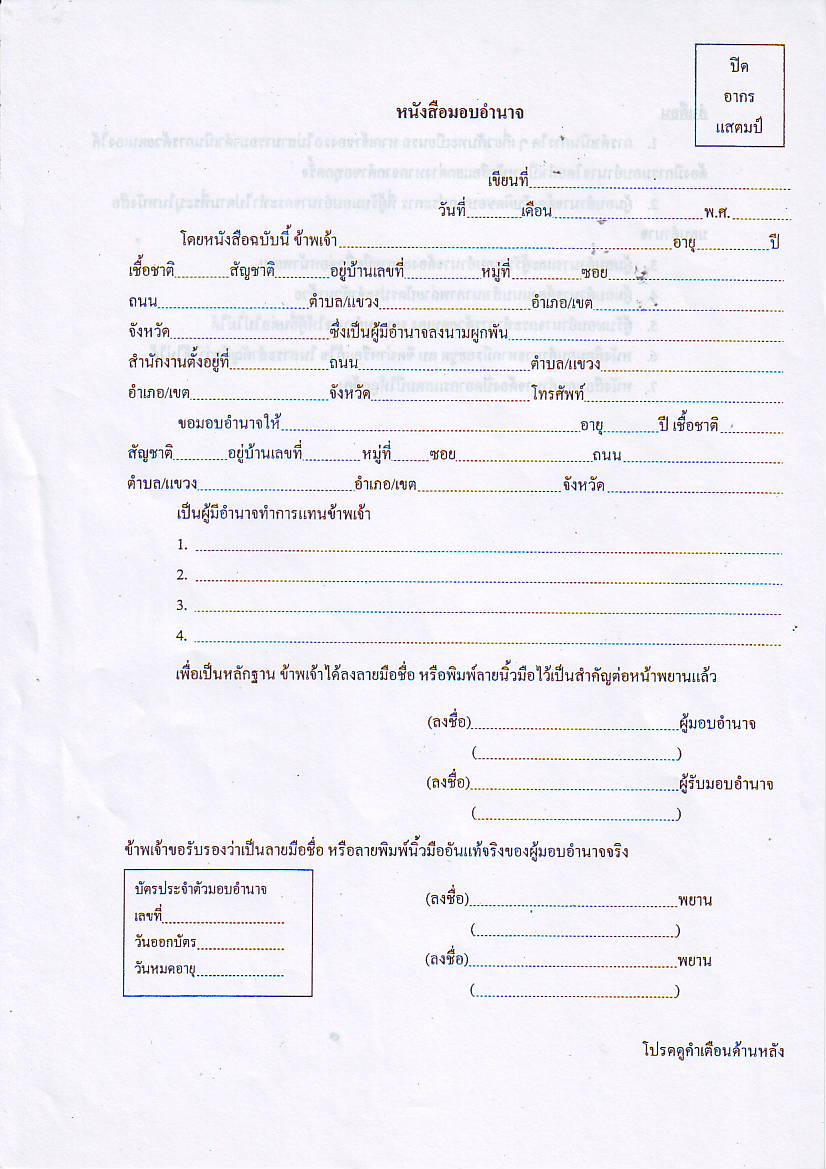 ปิด
อากร
แสตมป์
หนังสือมอบอำนาจ
เขียนที่
วันที่ เดือน พ.ศ.
โดยหนังสือฉบับนี้ ข้าพเจ้า อายุ ปี
เชื้อชาติ สัญชาติ อยู่บ้านเลขที่ หมู่ที่ ซอย
ถนน ตำบล/แขวง อำเภอ/เขต
จังหวัด ซึ่งเป็นผู้มีอำนาจลงนามผูกพัน
สำนักงานตั้งอยู่ที่ ถนน ตำบล/แขวง
อำเภอ/เขต จังหวัด โทรศัพท์
ขอมอบอำนาจให้ อายุ ปี เชื้อชาติ
สัญชาติ อยู่บ้านเลขที่ หมู่ที่ ซอย ถนน
ตำบล/แขวง อำเภอ/เขต จังหวัด
เป็นผู้มีอำนาจทำการแทนข้าพเจ้า
1.
2.
3.
4.
เพื่อเป็นหลักฐาน ข้าพเจ้าได้ลงลายมือชื่อ หรือพิมพ์ลายนิ้วมือไว้เป็นสำคัญต่อหน้าพยานแล้ว
(ลงชื่อ) ผู้มอบอำนาจ
( )
(ลงชื่อ) ผู้รับมอบอำนาจ
( )
ข้าพเจ้าขอรับรองว่าเป็นลายมือชื่อ หรือลายพิมพ์นิ้วมืออันแท้จริงของผู้มอบอำนาจจริง
บัตรประจำตัวมอบอำนาจ
เลขที่
วันออกบัตร
วันหมดอายุ
(ลงชื่อ) พยาน
( )
(ลงชื่อ) พยาน
( )
โปรดดูคำเตือนด้านหลัง